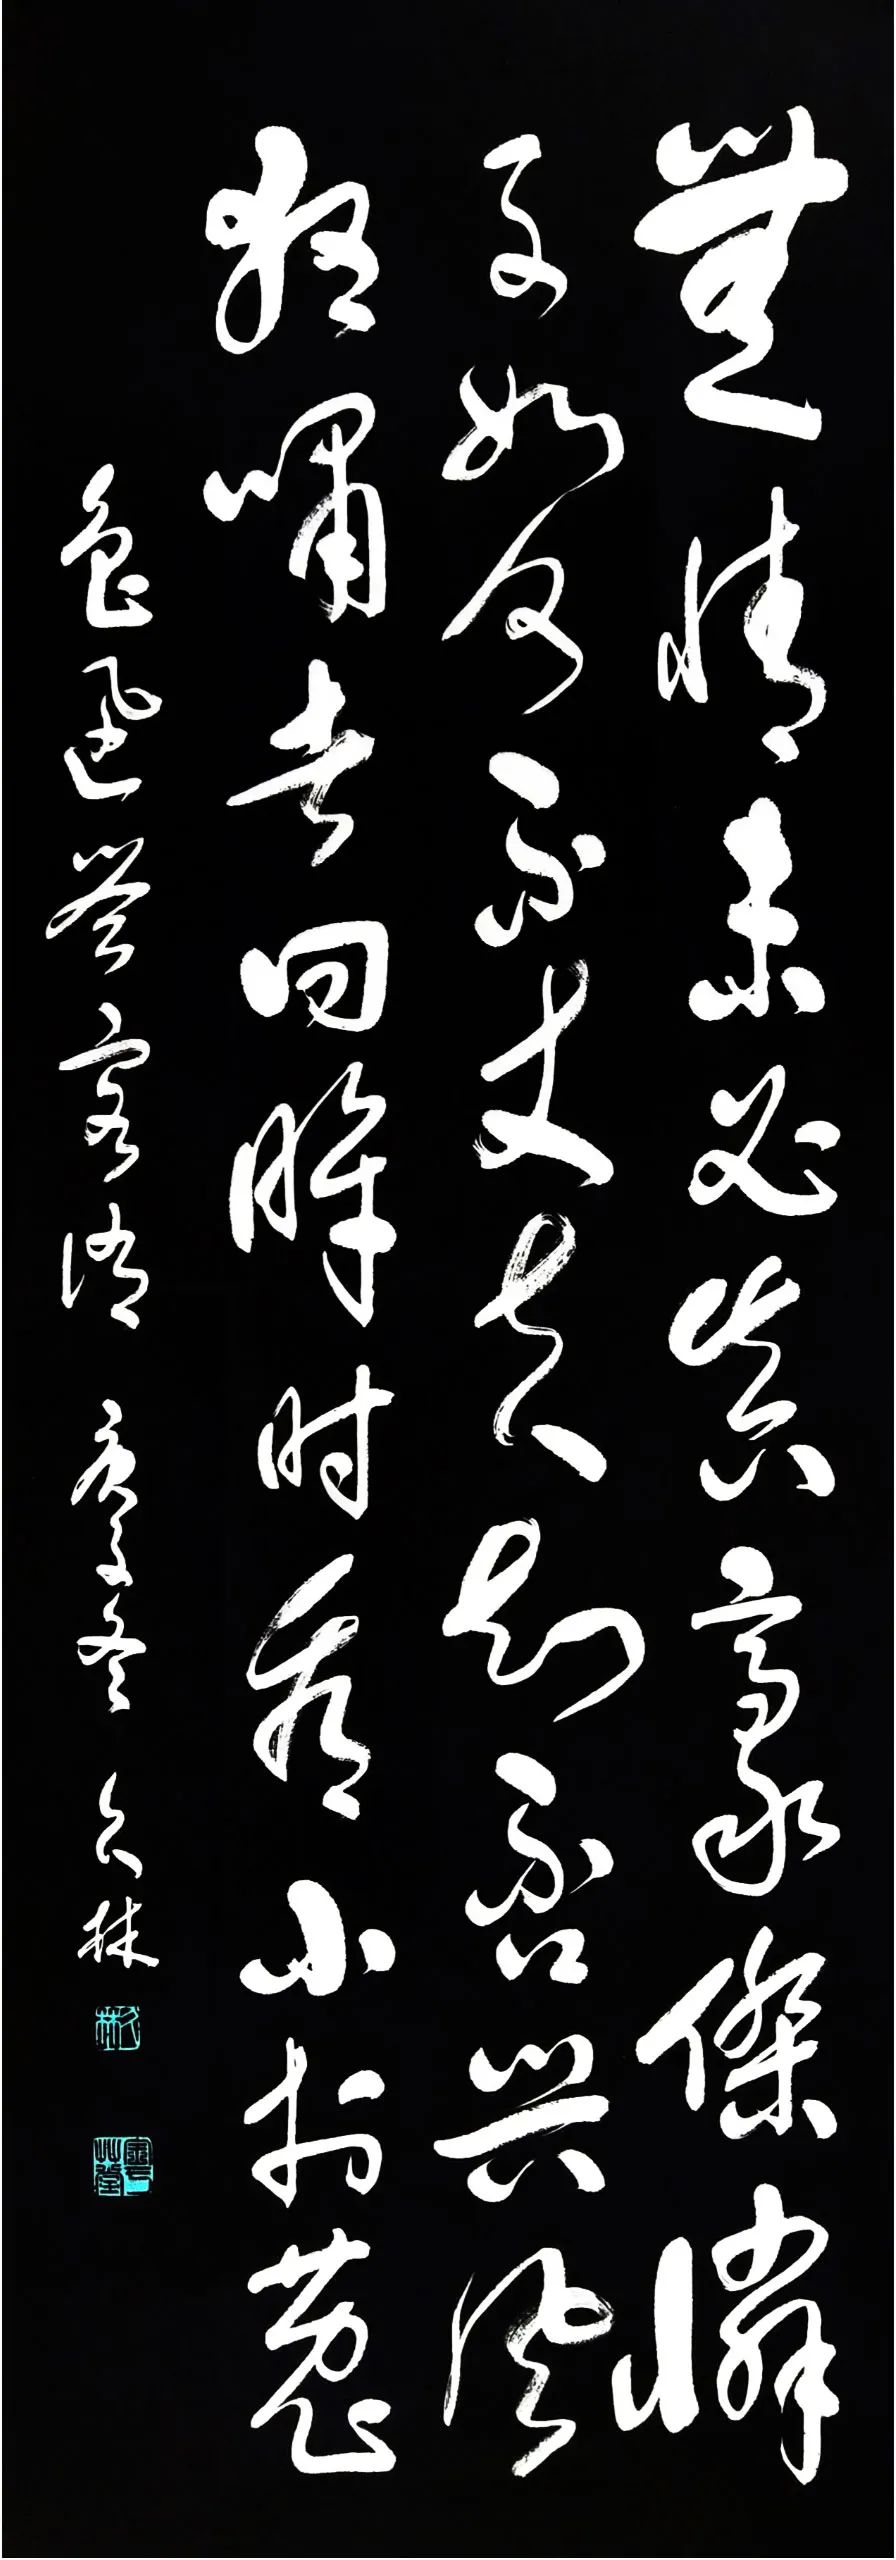 無情未必真豪傑憐
子如何不丈夫知否兴風
狂嘯者回眸时看小於菟
魯迅答客誚 庚子冬